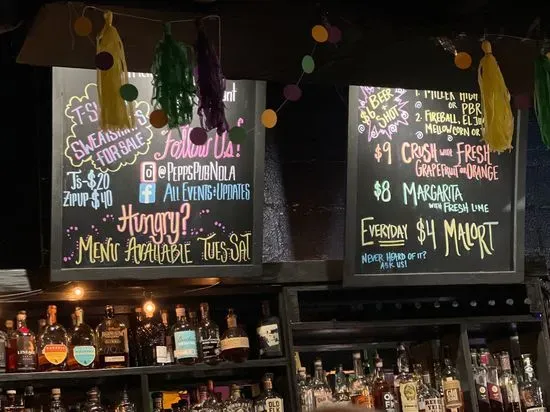 T-S
SWEATSHIRTS
FOR SALE!
Ts-$20
ZIPUP $40
Follow Us!
@PEPPSPUBNOLA
ALL EVENTS & UPDATES
Hungry?
MENU AVAILABLE TUES-SAT
$6 BEER
+
SHOT
1. MILLER HIGH
OR PBR
2. FIREBALL, EL
MELLOW CORN OR
$9 CRUSH WITH FRESH
GRAPEFRUIT OR ORANGE
$8 MARGARITA
WITH FRESH LIME
EVERYDAY $4 MALORT
NEVER HEARD OF IT?
ASK US!